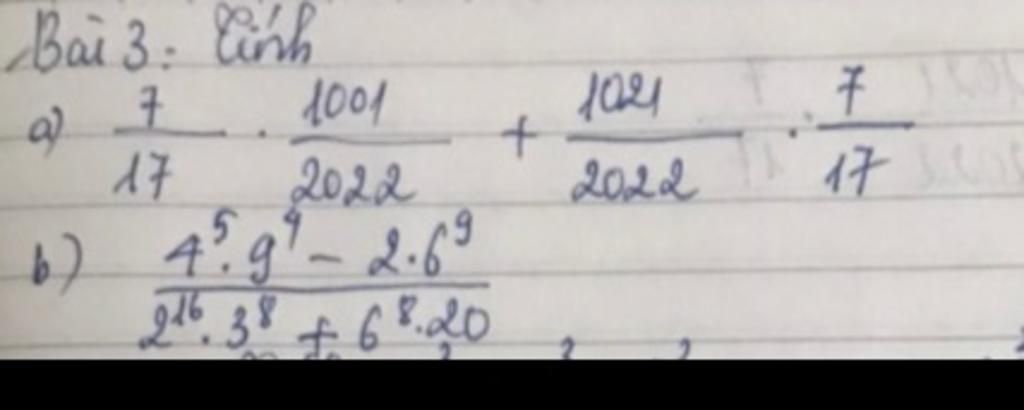 Bài 3: Tính
a) 7/17 . 1001/2022 + 1021/2022 . 7/17
b) (4^5 . 9^4 - 2.6^9)/(2^16 . 3^8 + 6^8 . 20)